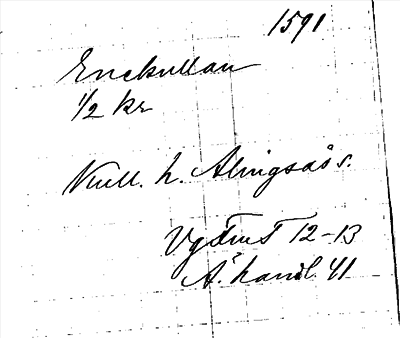 1591
Enekullan
1/2 kr
Kull. h. Alingsås s.
Vg 12-13
Ä. handl. 41